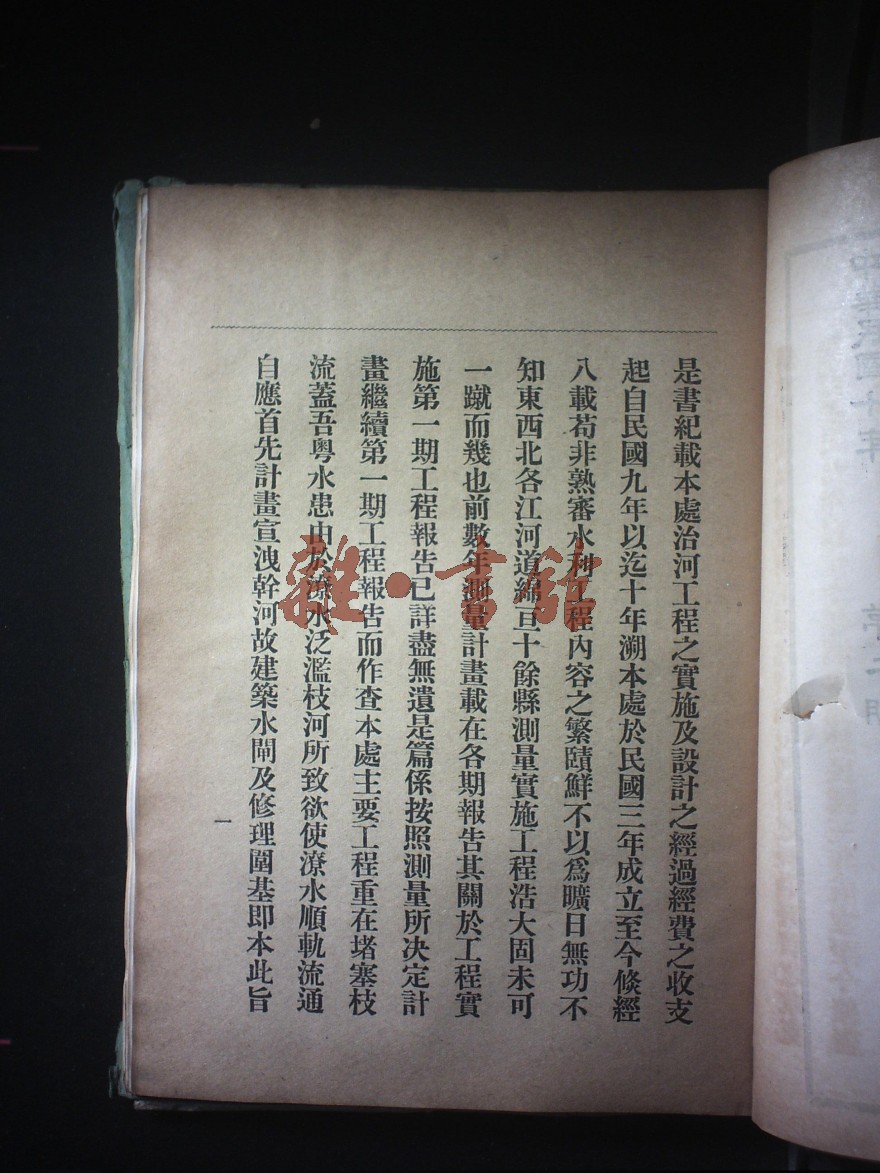 是書紀載本處治河工程之實施及設計之經過經費之收支
起自民國九年以迄十年溯本處於民國三年成立至今倐經
八載苟非熟審水利工程內容之繁賾鮮不以爲曠日無功不
知東西北各江河道綿亘十餘縣測量實施工程浩大固未可
一蹴而幾也前數年測量計畫載在各期報告其關於工程實
施第一期工程報告已詳盡無遺是篇係按照測量所决定計
畫繼續第一期工程報告而作查本處主要工程重在堵塞枝
流蓋吾粵水患由於潦水泛濫枝河所致欲使潦水順軌流通
自應首先計畫宣洩幹河故建築水閘及修理圍基即本此旨
一
雜·書館